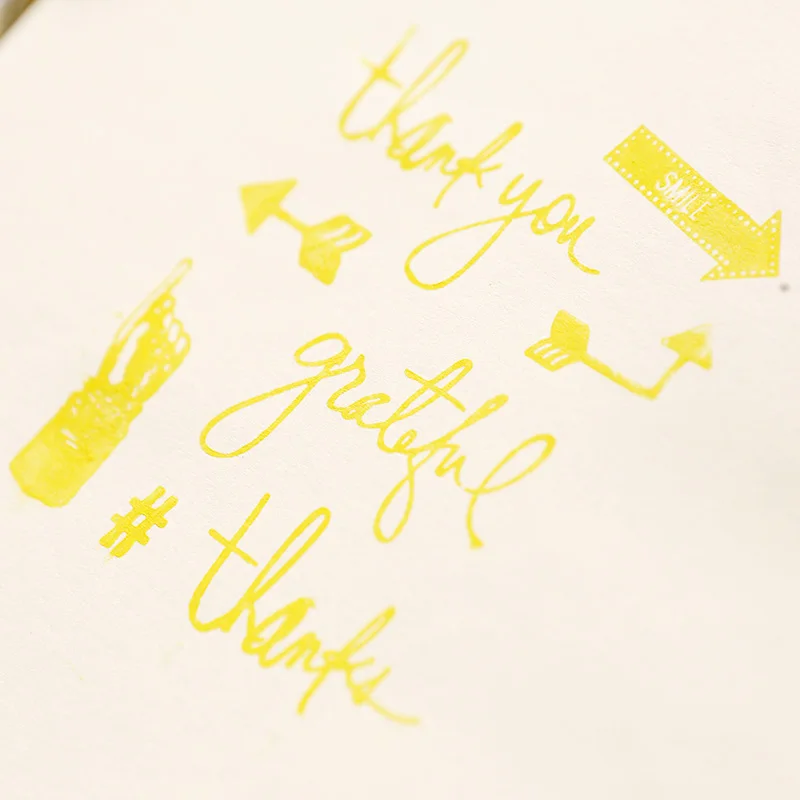 thank you
SMILE
grateful
# thanks